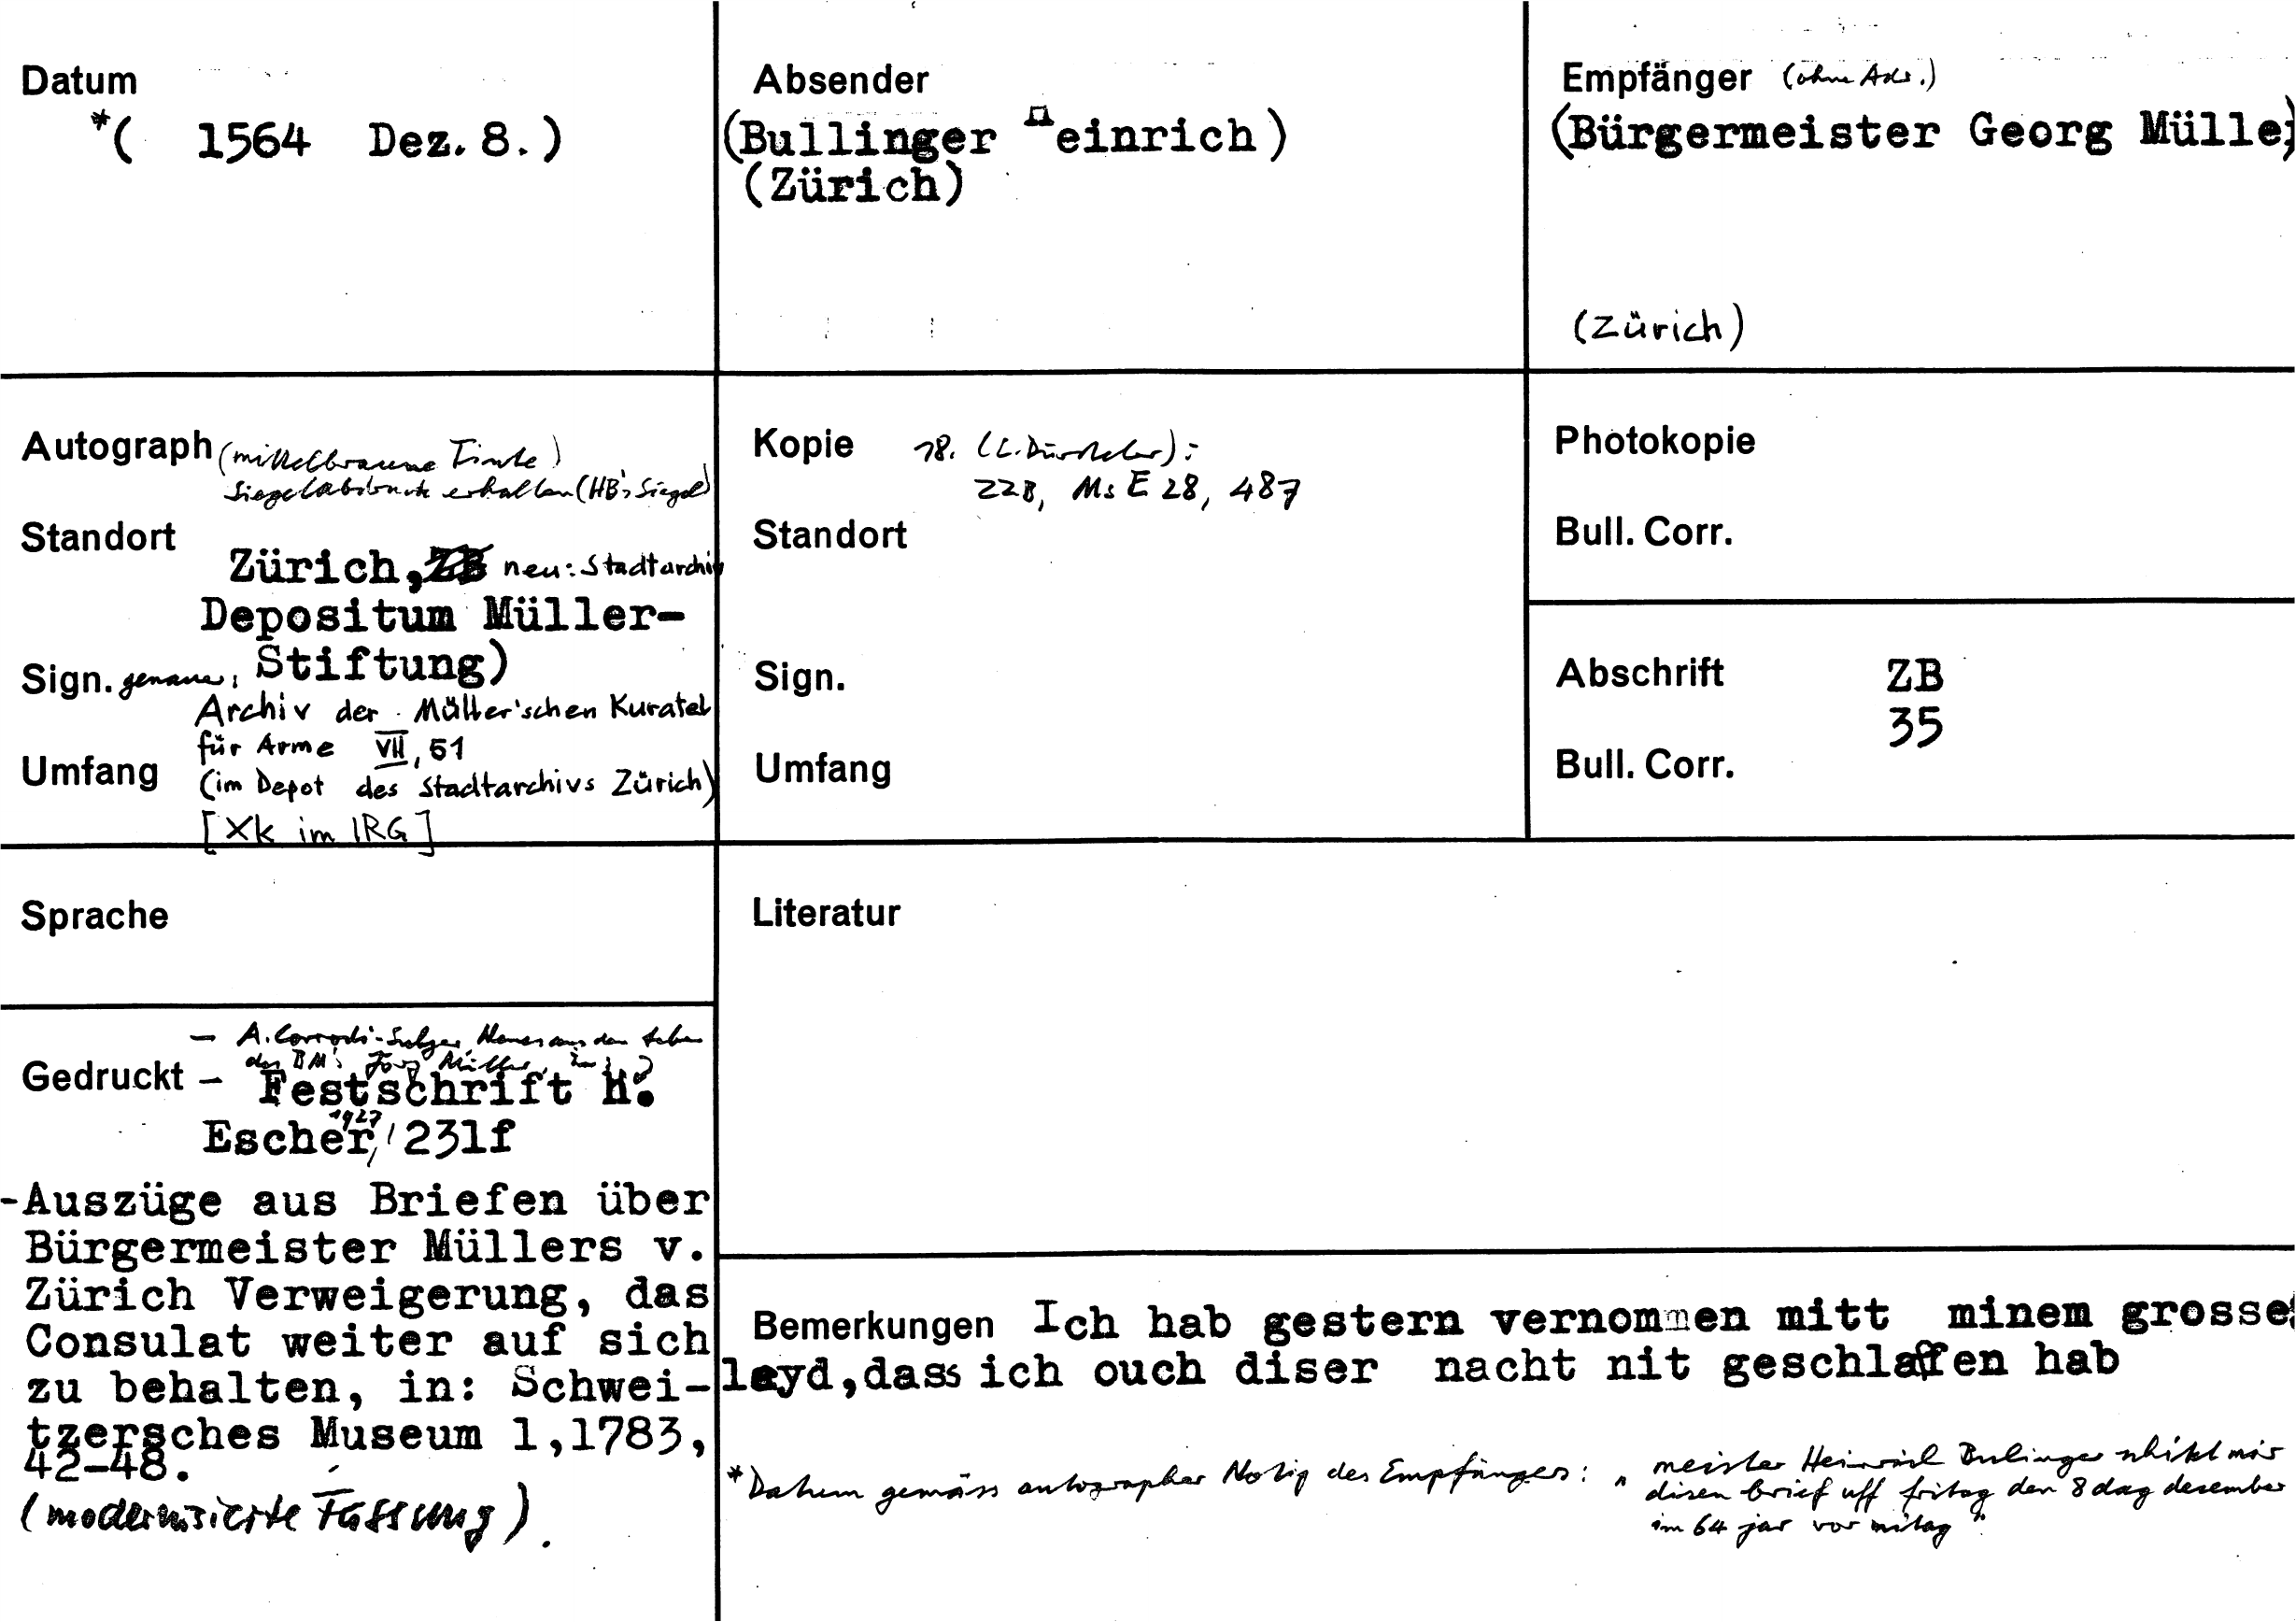 Datum
*( 1564 Dez. 8.)
Absender
(Bullinger Heinrich)
(Zürich)
Empfänger (ohne Adr.)
(Bürgermeister Georg Mülle
(Zürich)
Autograph (mittelbraune Tinte)
Siegelabdruck erhalten (HB's Siegel)
Standort
Zürich, ZB neu: Stadtarchiv
Depositum Müller-
Stiftung)
Sign. genauer:
Archiv der Müller'schen Kuratel
für Arme VII, 51
Umfang (im Depot des Stadtarchivs Zürich)
[Xk im IRG]
Kopie 18. (E. Dürsteler):
ZZB, Ms E 28, 487
Standort
Sign.
Umfang
Photokopie
Bull. Corr.
Abschrift ZB
35
Bull. Corr.
Sprache
Literatur
– A. Corrodi-Sulzer, Neues aus dem Leben
des BM's Jörg Müller, in:
Gedruckt – Festschrift H.
Escher, 1927, 231f
-Auszüge aus Briefen über
Bürgermeister Müllers v.
Zürich Verweigerung, das
Consulat weiter auf sich
zu behalten, in: Schwei-
tzersches Museum 1,1783,
42-48.
(modernisierte Fassung).
Bemerkungen Ich hab gestern vernommen mitt minem grosse
leyd,dass ich ouch diser nacht nit geschlaffen hab
*Datum gemäss autographer Notiz des Empfängers: "meister Heinrich Bulinger schikt mir
disen brief uff fritag den 8 dag desember
im 64 jar vor mitag"